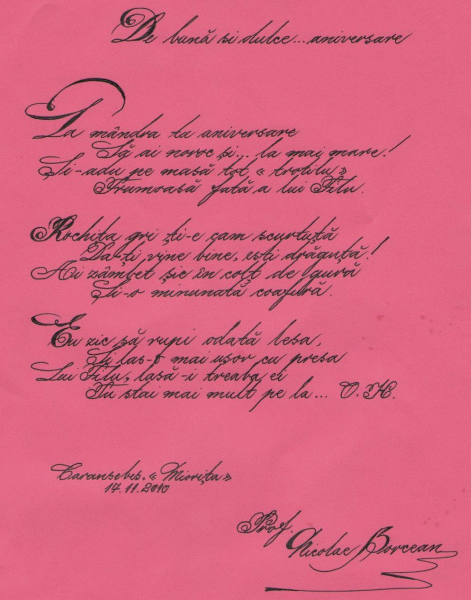 De bună si dulce... aniversare
La mândra ta aniversare
Să ai noroc și... la mai mare!
Și-adu pe masă tot « troțilu »
Frumoasă fată a lui Titu.
Rochița gri ți-e cam scurtuță
Da-ți vine bine, ești drăguță!
Ai zâmbet șic în colț de gură
Și-o minunată coafură.
Eu zic să rupi odată lesa,
Și las-o mai ușor cu presa
Lui Titu, lasă-i treaba ei
Tu stai mai mult pe la... O.H.
Caransebeș. « Miorița »
17.11.2010
Prof.
Nicolae Borcean